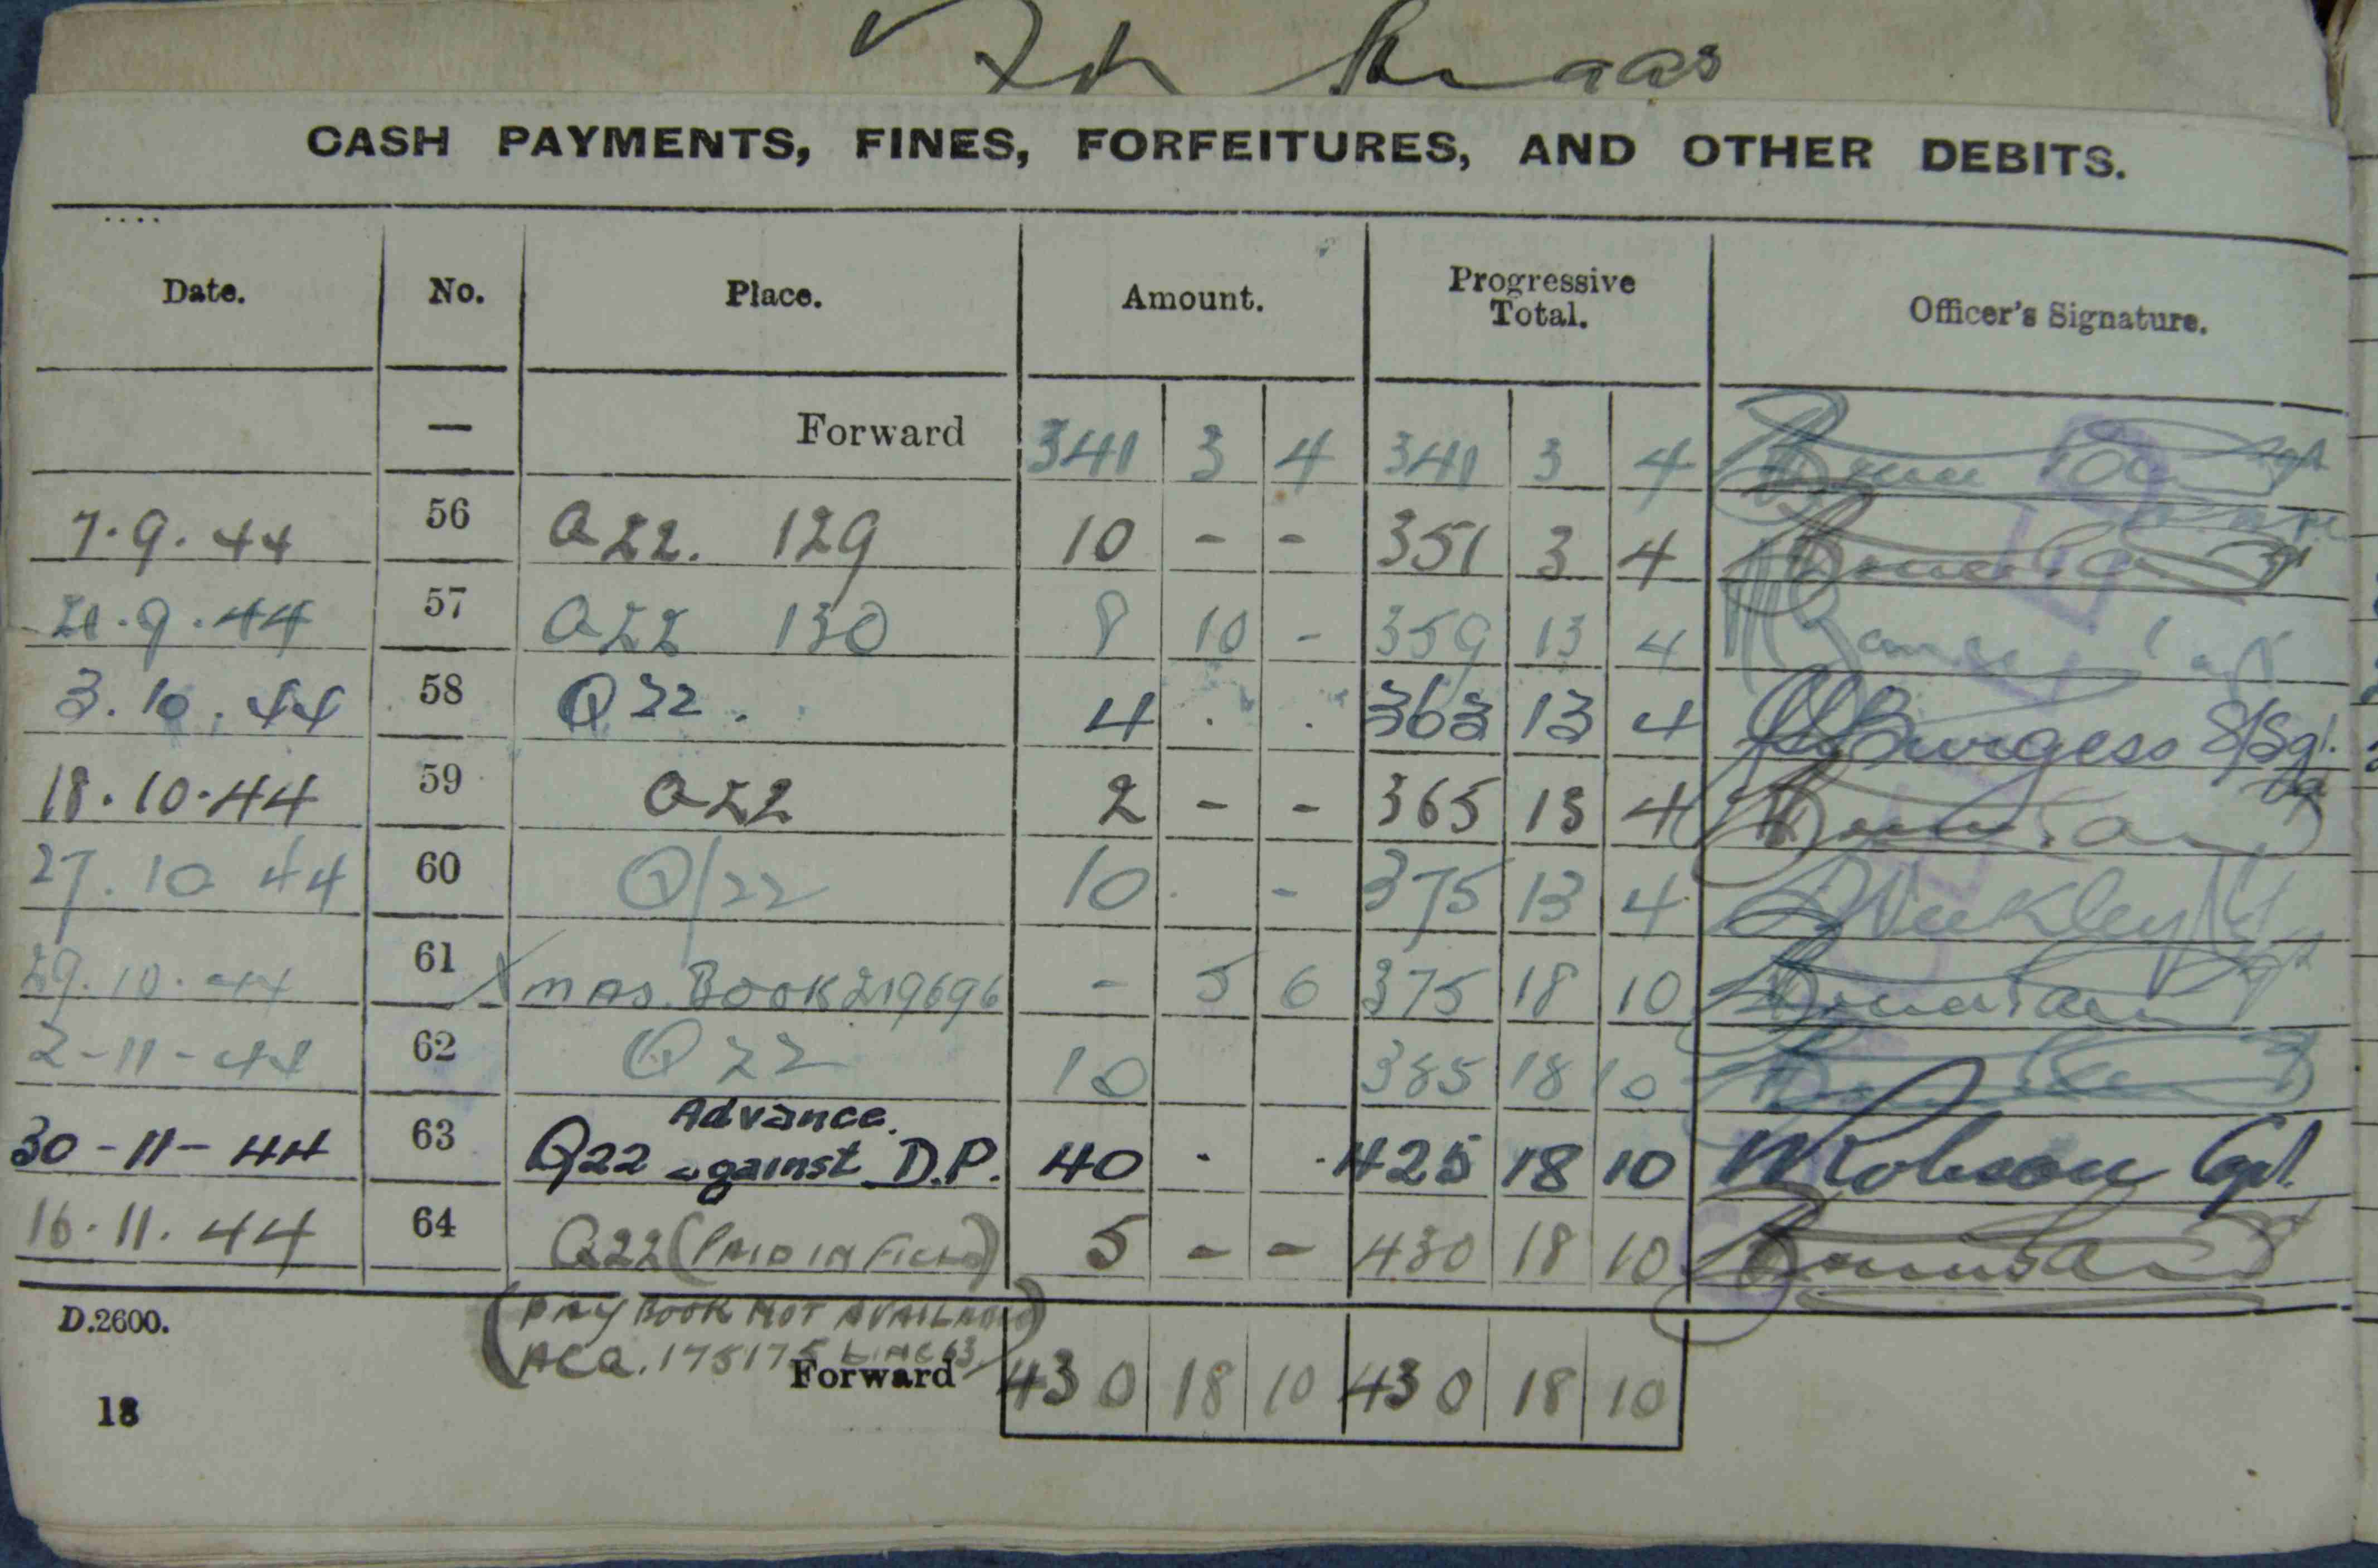 CASH PAYMENTS, FINES, FORFEITURES, AND OTHER DEBITS.
Date. No. Place. Amount. Progressive Total. Officer's Signature.
— Forward 341 3 4 341 3 4
7.9.44 56 Q22. 129 10 - - 351 3 4
21.9.44 57 Q22 130 8 10 - 359 13 4
3.10.44 58 Q22. 4 . . 363 13 4 Burgess S/Sgt.
18.10.44 59 Q22 2 - - 365 13 4
27.10 44 60 Q/22 10 - 375 13 4
29.10.44 61 Xmas. Book 219696 - 5 6 375 18 10
2-11-44 62 Q22 10 385 18 10
30-11-44 63 Q22 Advance. against D.P. 40 . . 425 18 10 Robson Cpl.
16.11.44 64 Q22 (PAID IN FIELD) 5 - - 430 18 10
D.2600. (PAY BOOK NOT AVAILABLE)
ACQ. 175175 LINE 63)
Forward 430 18 10 430 18 10
18